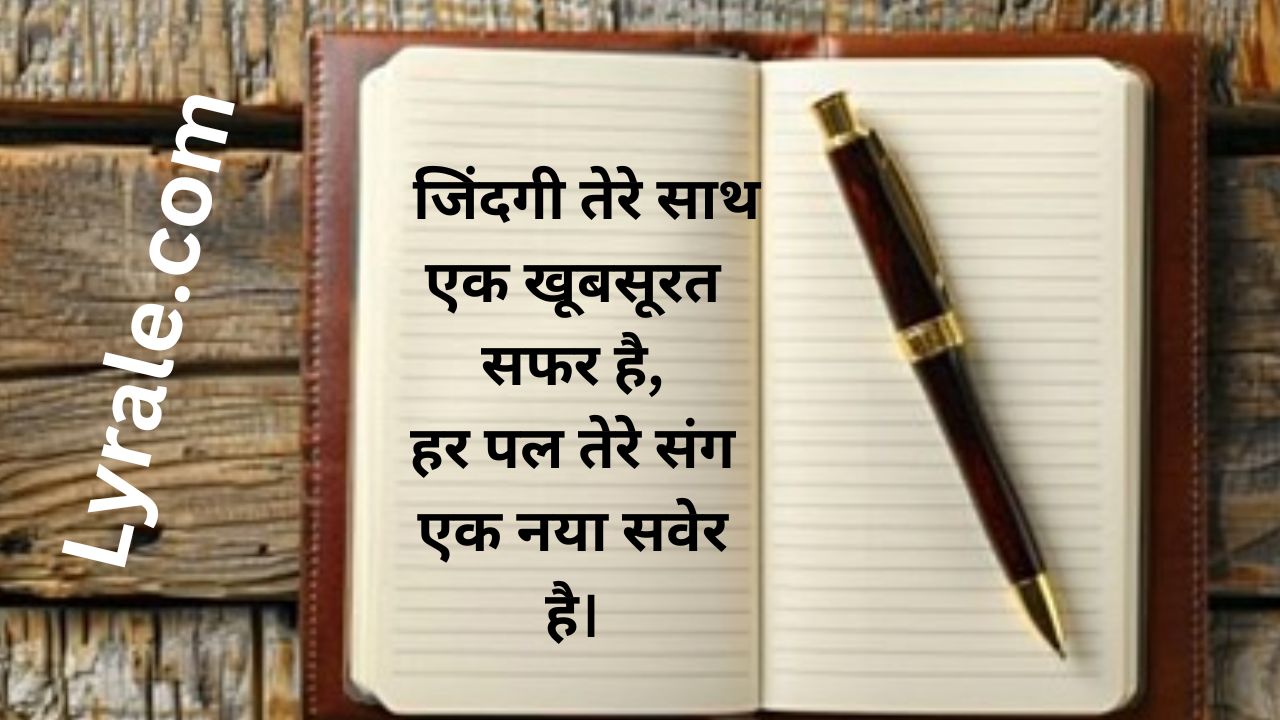 Lyrale.com
जिंदगी तेरे साथ
एक खूबसूरत
सफर है,
हर पल तेरे संग
एक नया सवेर
है।